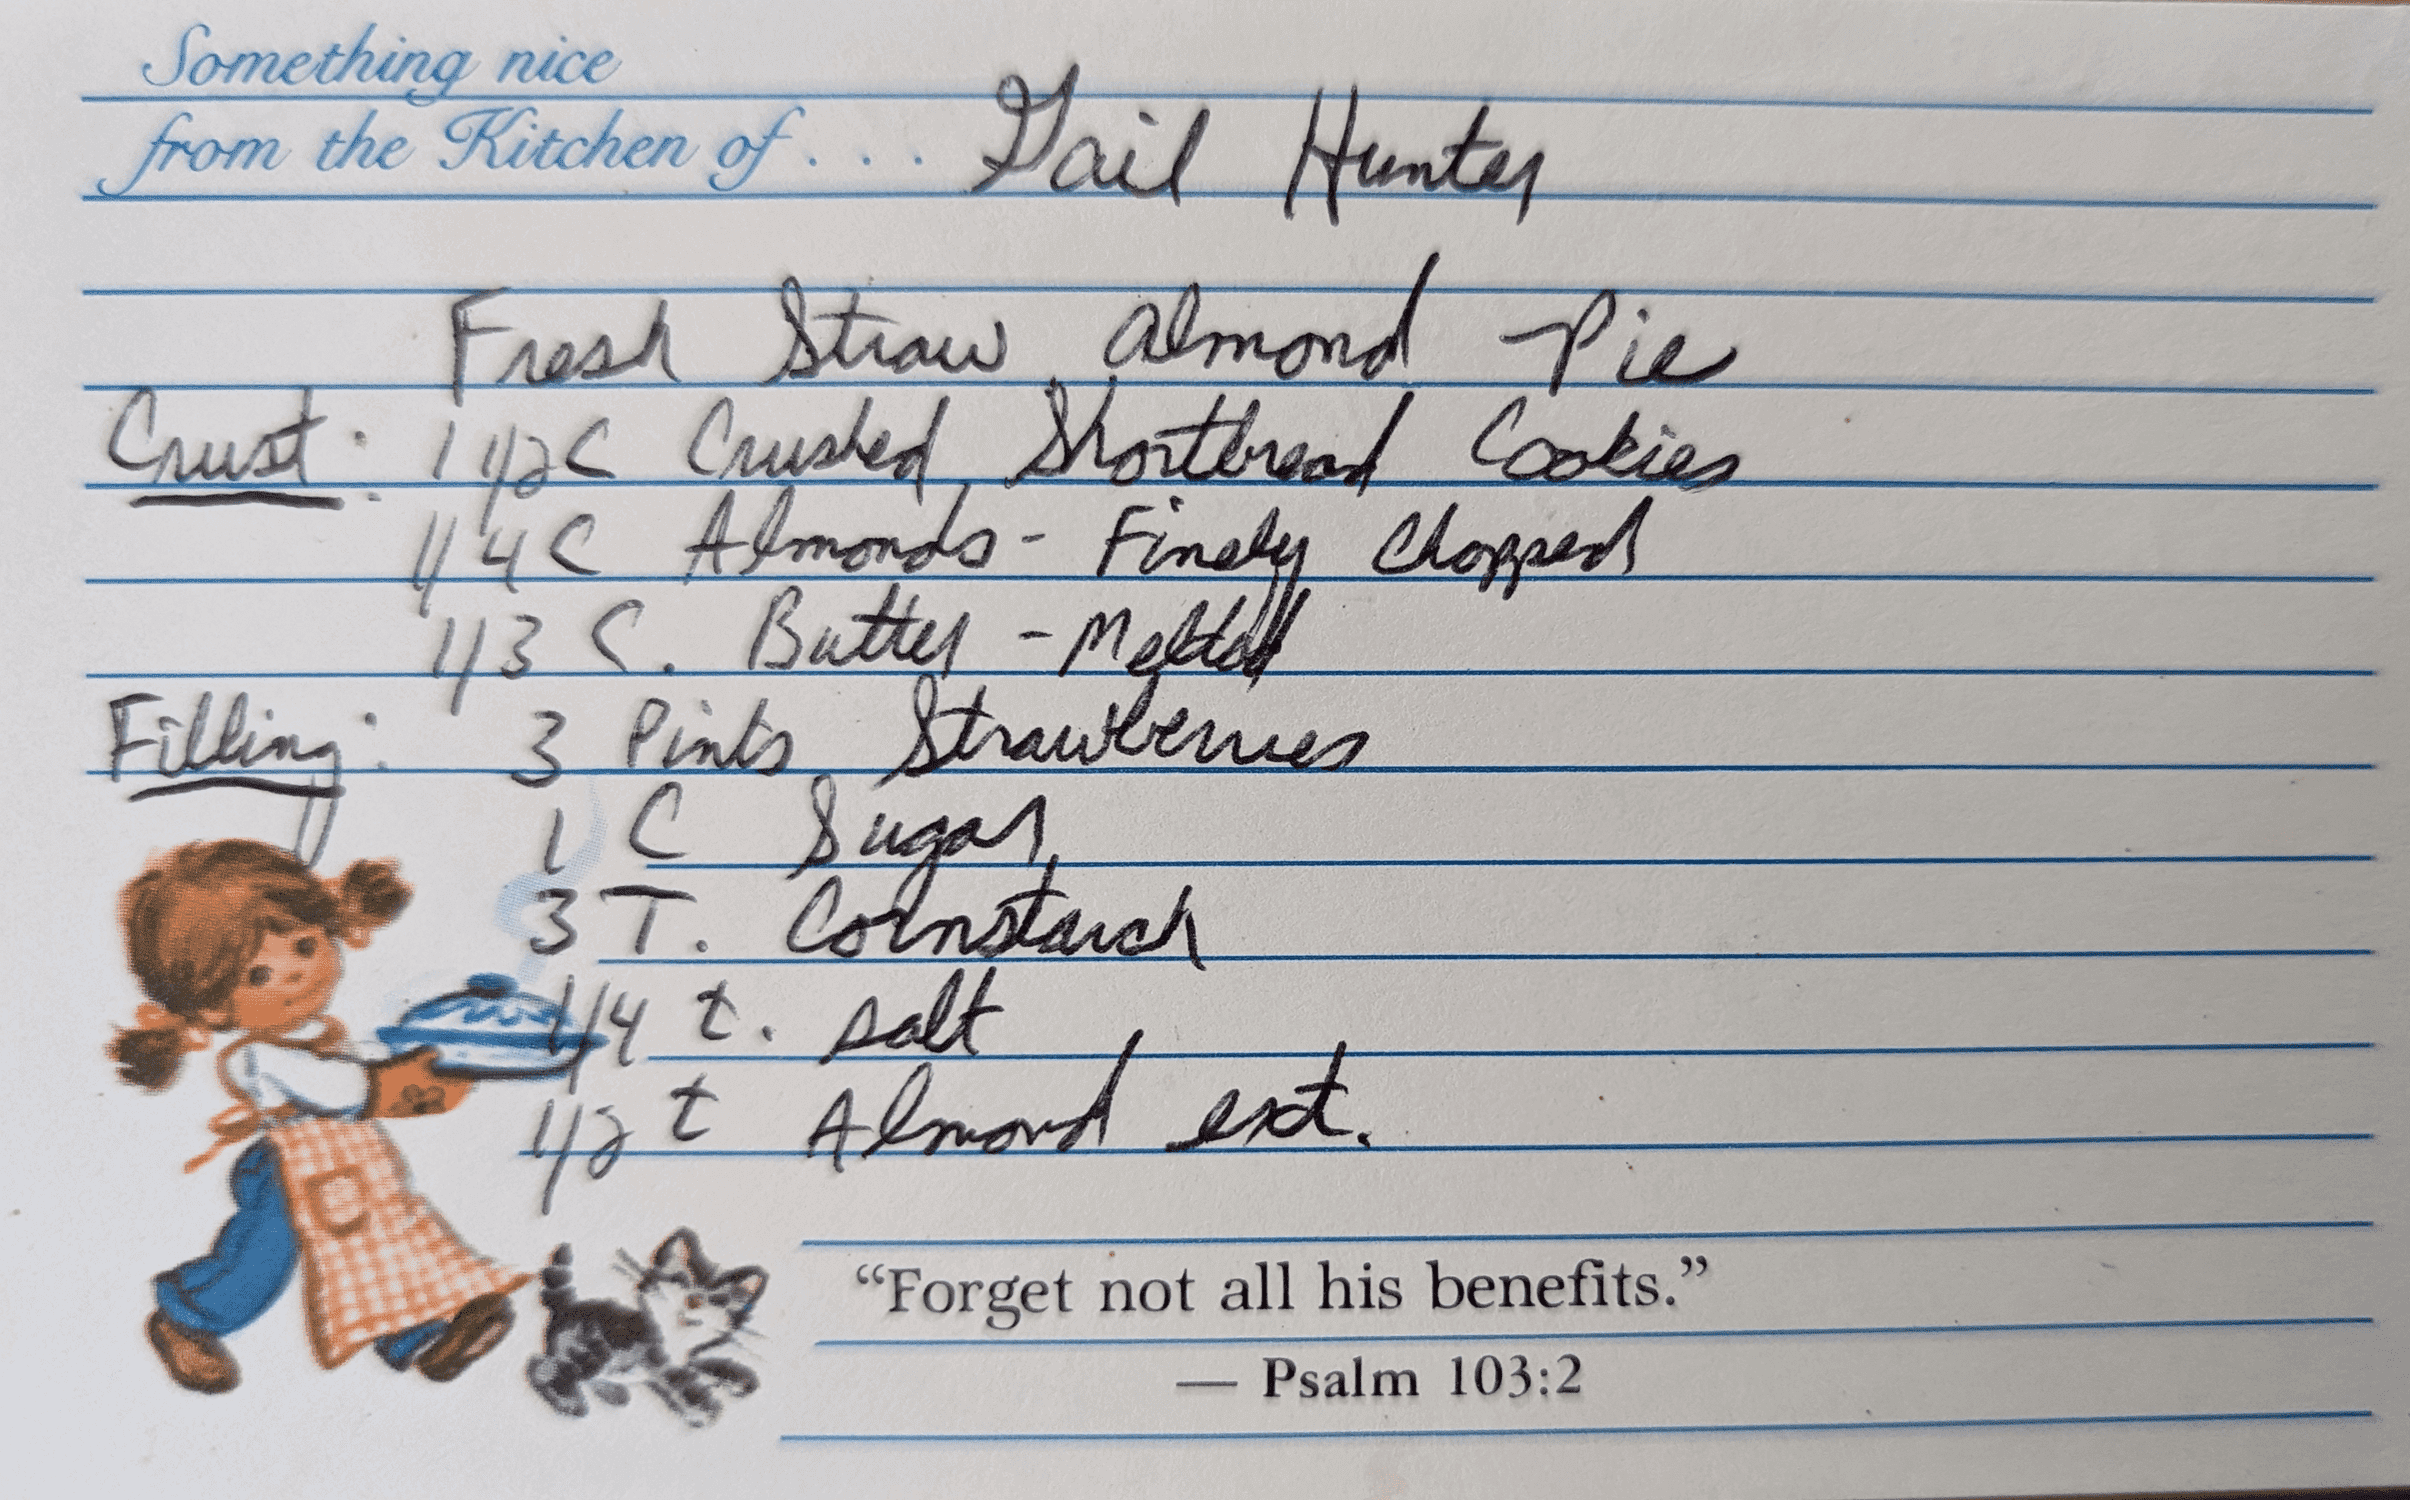 Something nice
from the Kitchen of . . . Gail Hunter
Fresh Straw Almond Pie
Crust: 1 1/2 C Crushed Shortbread Cookies
1/4 C Almonds - Finely Chopped
1/3 C. Butter - Melted
Filling: 3 Pints Strawberries
1 C Sugar
3 T. Cornstarch
1/4 t. salt
1/2 t Almond ext.
“Forget not all his benefits.”
— Psalm 103:2